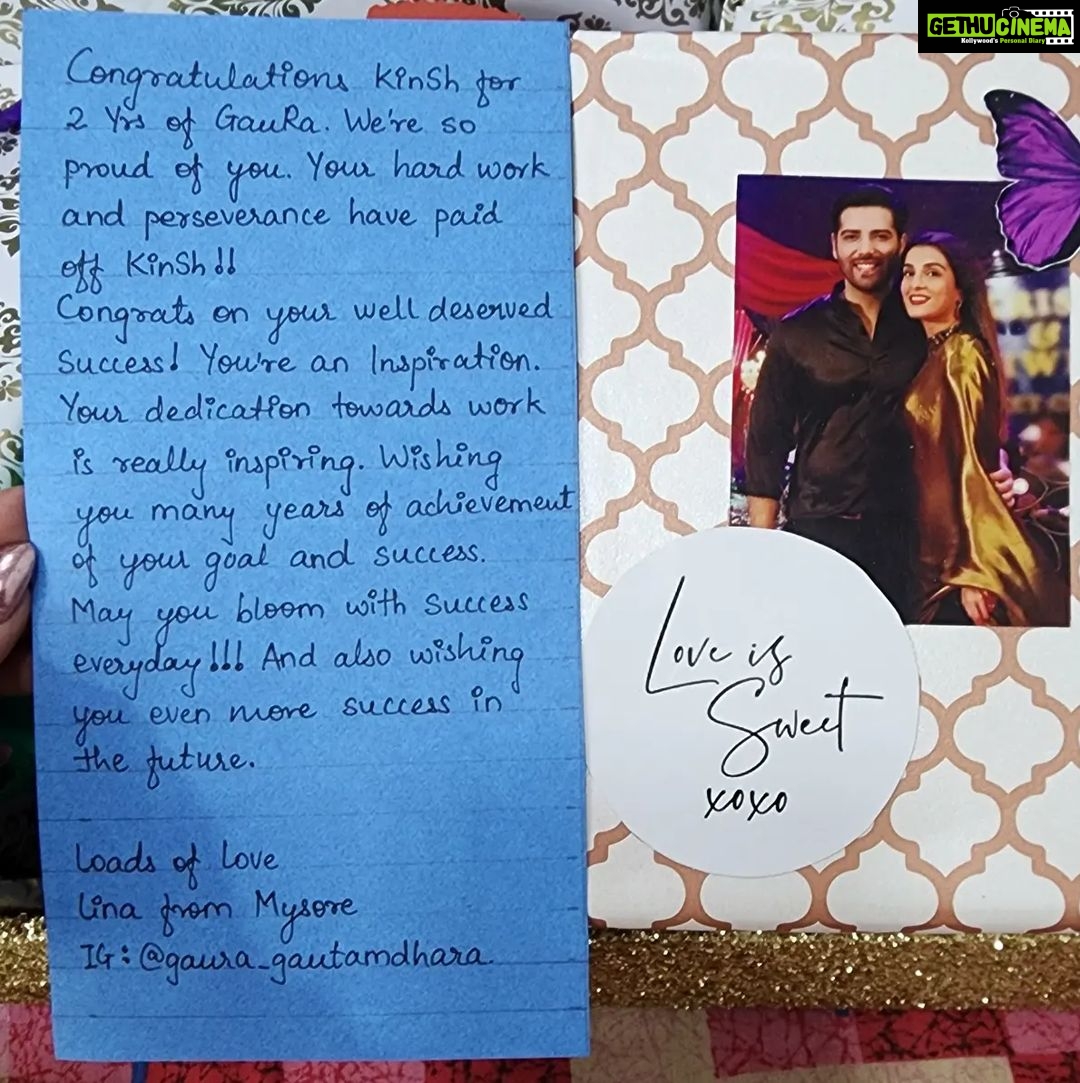 GETHUCINEMA
Kollywood's Personal Diary
Congratulations KinSh for
2 Yrs of GauRa. We're so
proud of you. Your hard work
and perseverance have paid
off KinSh!!
Congrats on your well deserved
success! You're an Inspiration.
Your dedication towards work
is really inspiring. Wishing
you many years of achievement
of your goal and success.
May you bloom with success
everyday!!! And also wishing
you even more success in
the future.
Loads of Love
Lina from Mysore
IG: @gaura_gautamdhara
Love is
Sweet
xoxo